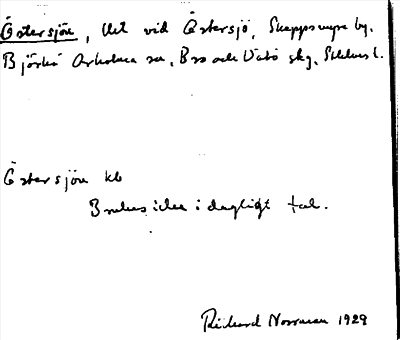 Östersjön, Utt vid Östersjö, Skeppsmyra by.
Björkö Arholma sn, Bro och Vätö skg, Sthlms l.
Östersjön kb
Brukas icke i dagligt tal.
Richard Norrman 1929